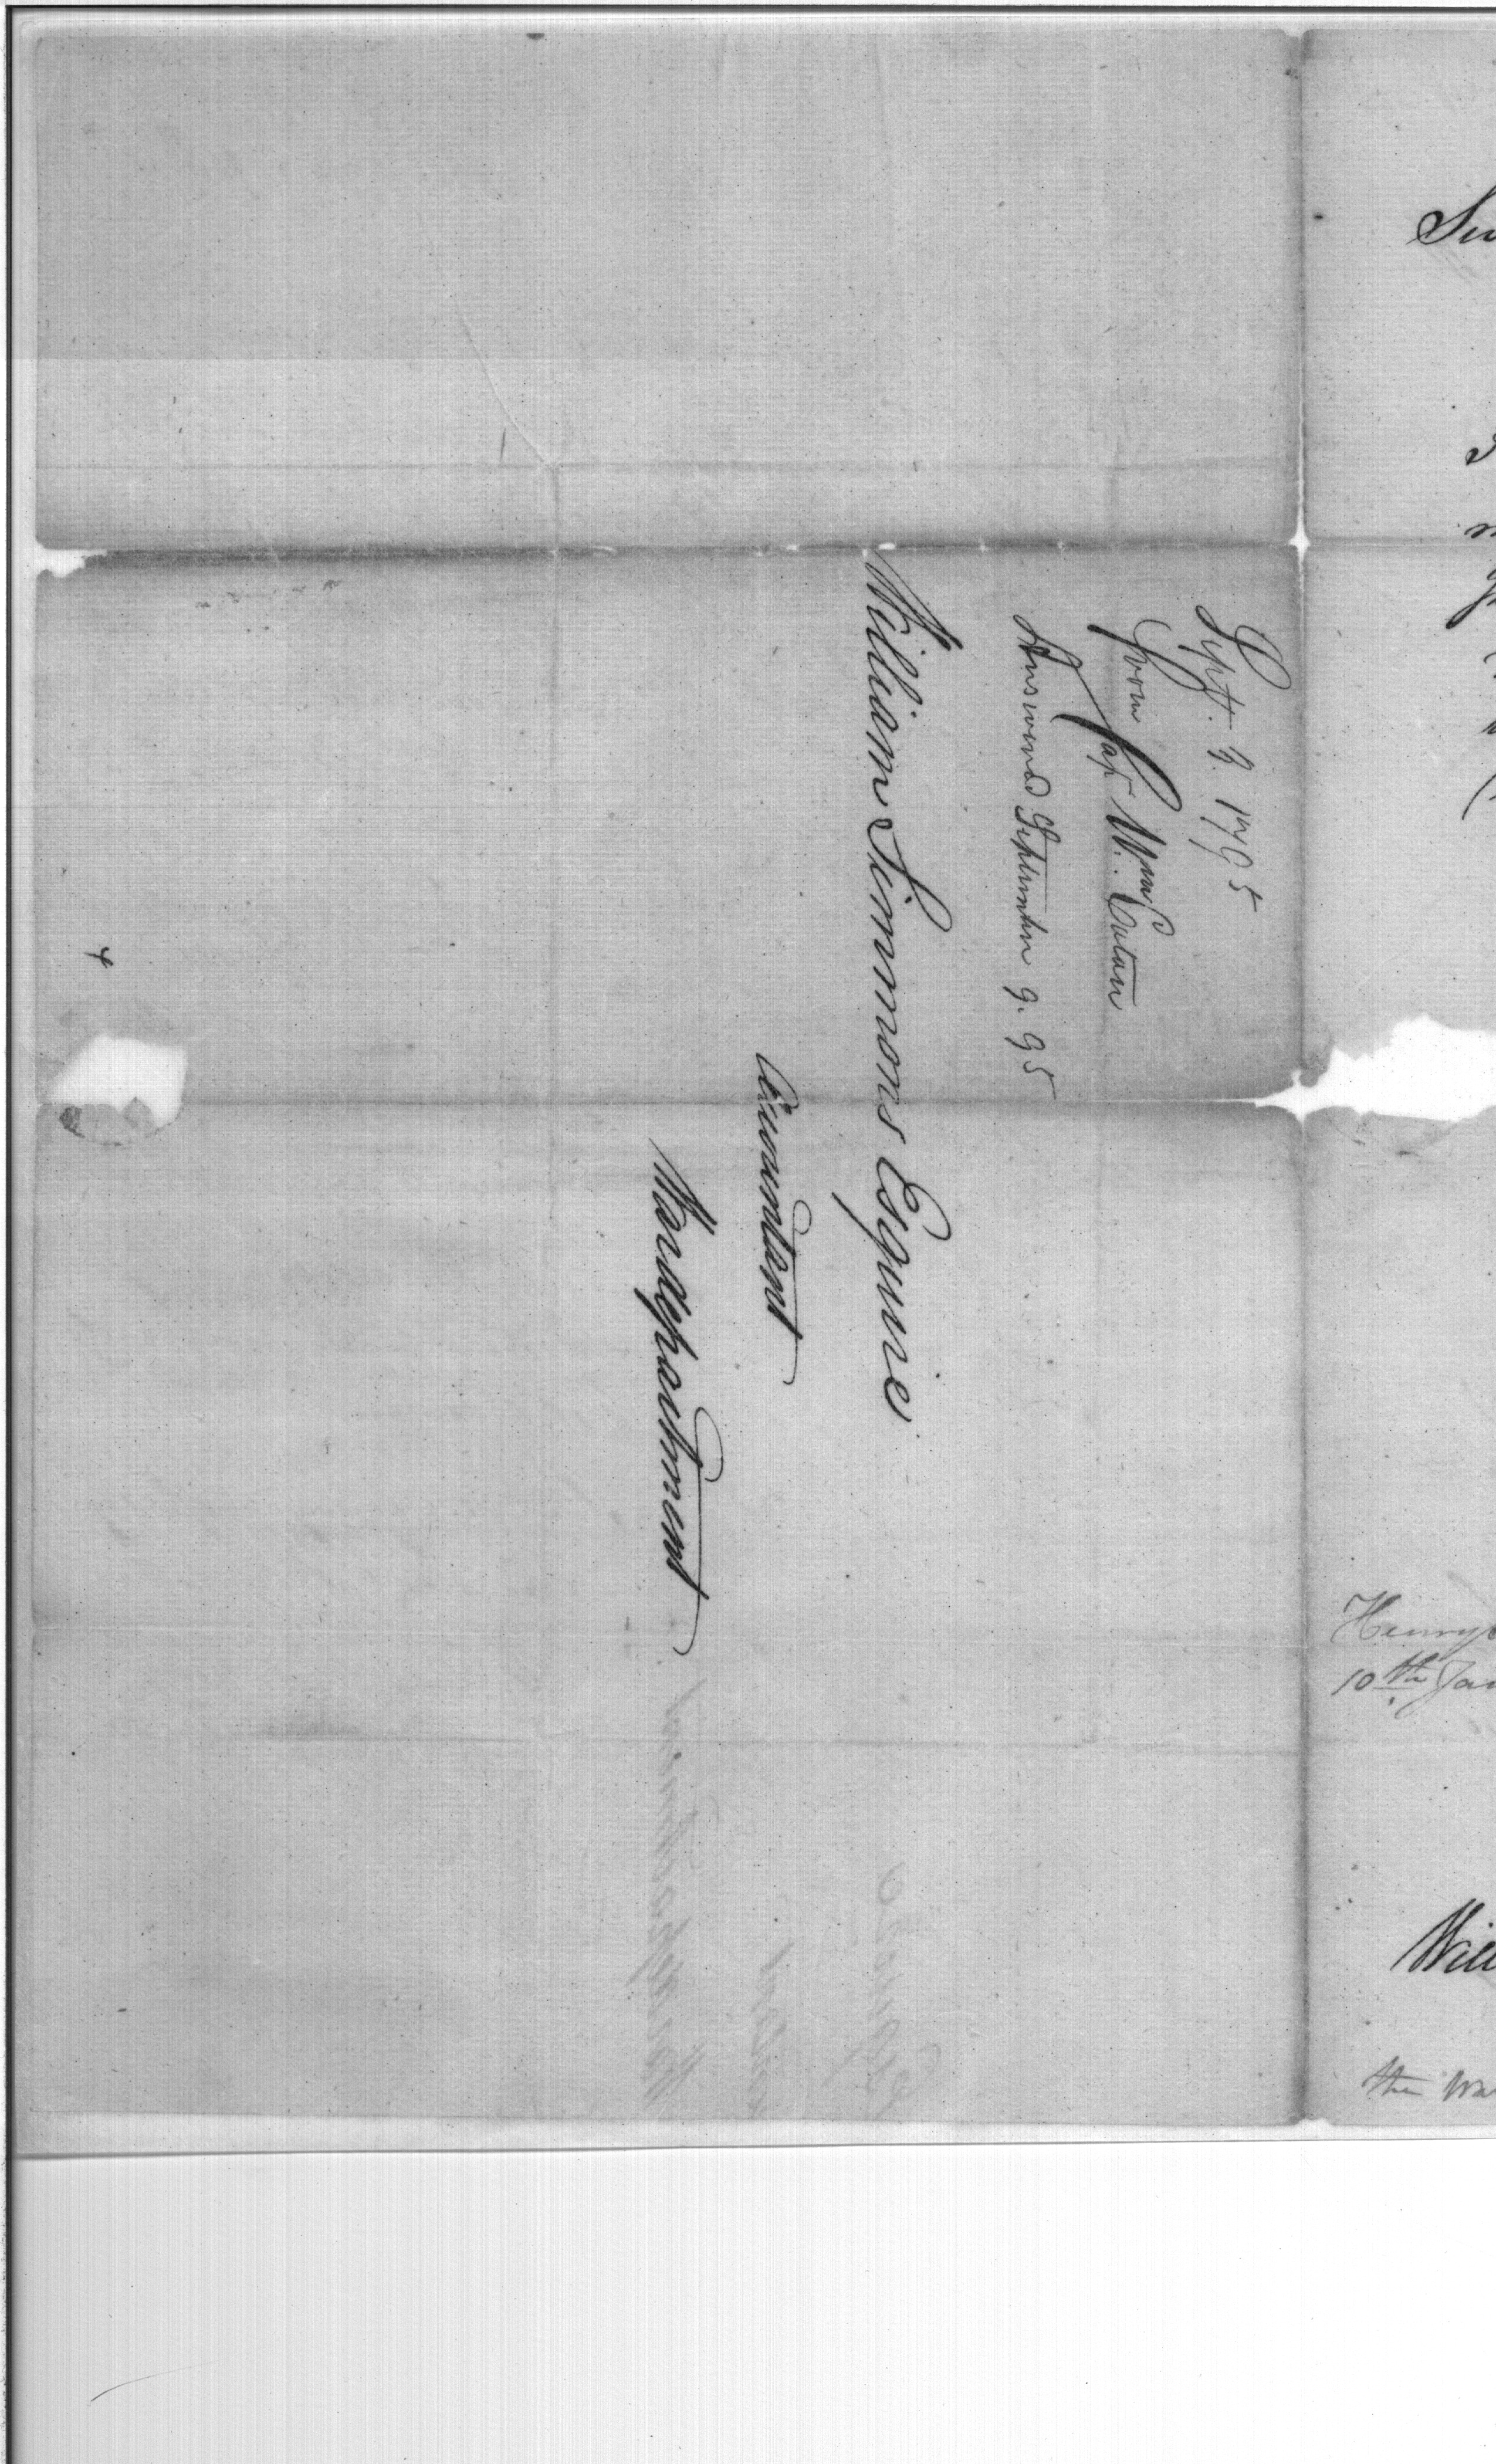 Sept. 9. 1795
From Cap Wm. Eaton
Answered September 9. 95
William Simmons Esquire
Accountant
Wardepartment
Henry
10th Jan
Will
the Wa